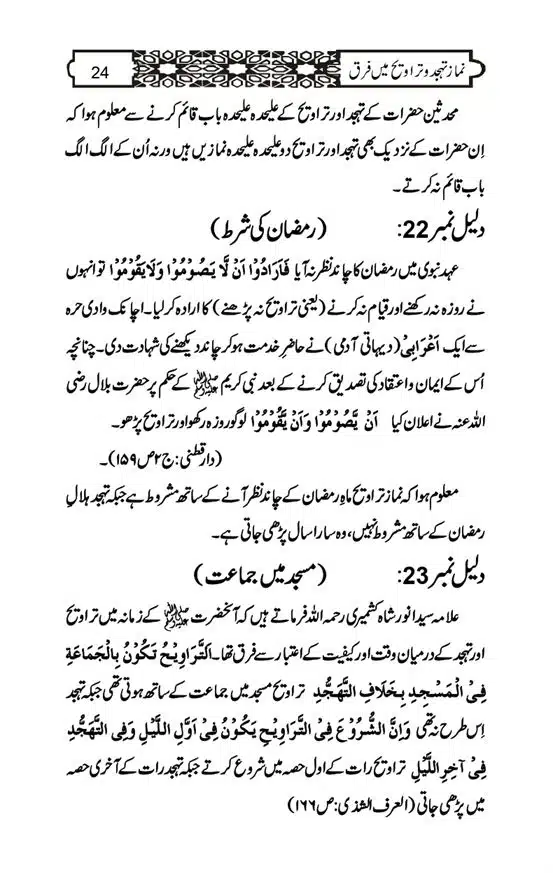 نماز تہجد و تراویح میں فرق
24
محدثین حضرات کے تہجد اور تراویح کے علیحدہ علیحدہ باب قائم کرنے سے معلوم ہوا کہ
اِن حضرات کے نزدیک بھی تہجد اور تراویح دو علیحدہ علیحدہ نمازیں ہیں ورنہ اُن کے الگ الگ
باب قائم نہ کرتے۔
دلیل نمبر 22: (رمضان کی شرط)
عہد نبوی میں رمضان کا چاند نظر نہ آیا فَاَرَادُوْا اَنْ لَّا یَصُوْمُوْا وَلَا یَقُوْمُوْا تو انہوں
نے روزہ نہ رکھنے اور قیام نہ کرنے (یعنی تراویح نہ پڑھنے) کا ارادہ کر لیا۔ اچانک وادی حرہ
سے ایک اَعْرَابِیْ (دیہاتی آدمی) نے حاضرِ خدمت ہو کر چاند دیکھنے کی شہادت دی۔ چنانچہ
اُس کے ایمان و اعتقاد کی تصدیق کرنے کے بعد نبی کریم ﷺ کے حکم پر حضرت بلال رضی
اللہ عنہ نے اعلان کیا اَنْ یَّصُوْمُوْا وَاَنْ یَّقُوْمُوْا لوگو روزہ رکھو اور تراویح پڑھو۔
(دار قطنی: ج۲ ص۱۵۹)۔
معلوم ہوا کہ نماز تراویح ماہِ رمضان کے چاند نظر آنے کے ساتھ مشروط ہے جبکہ تہجد ہلالِ
رمضان کے ساتھ مشروط نہیں، وہ سارا سال پڑھی جاتی ہے۔
دلیل نمبر 23: (مسجد میں جماعت)
علامہ سید انور شاہ کشمیری رحمہ اللہ فرماتے ہیں کہ آنحضرت ﷺ کے زمانہ میں تراویح
اور تہجد کے درمیان وقت اور کیفیت کے اعتبار سے فرق تھا۔ اَلتَّرَاوِیْحُ تَکُوْنُ بِالْجَمَاعَةِ
فِیْ الْمَسْجِدِ بِخَلَافِ التَّهَجُّدِ تراویح مسجد میں جماعت کے ساتھ ہوتی تھی جبکہ تہجد
اِس طرح نہ تھی وَاِنَّ الشُّرُوْعَ فِیْ التَّرَاوِیْحِ یَکُوْنُ فِیْ اَوَّلِ اللَّیْلِ وَفِی التَّهَجُّدِ
فِیْ آخِرِ اللَّیْلِ تراویح رات کے اول حصہ میں شروع کرتے جبکہ تہجد رات کے آخری حصہ
میں پڑھی جاتی (العرف الشذی: ص۱۶۶)